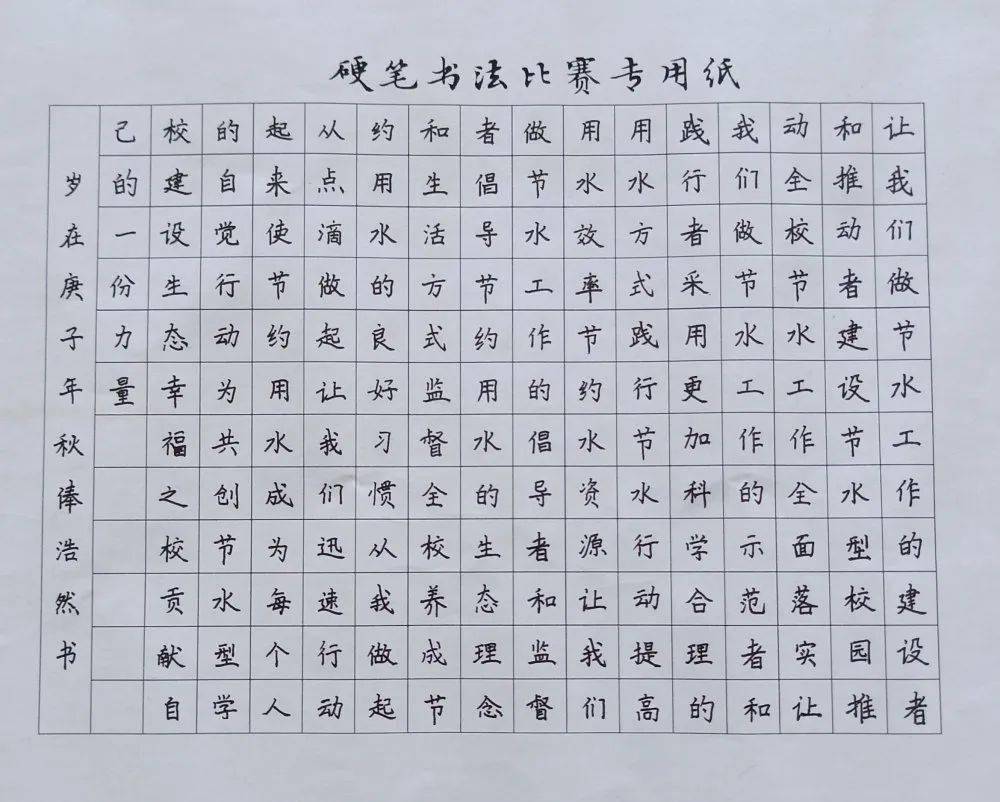 硬笔书法比赛专用纸
让我们做节水工作的建设者
和推动者建设节水型校园推
动全校节水工作全面落实让
我们做节水工作的示范者和
践行者采用更加科学合理的
用水方式践行节水行动提高
用水效率节约水资源让我们
做节水工作的倡导者和监督
者倡导节约用水的生态理念
和生活方式监督全校养成节
约用水的良好习惯从我做起
从点滴做起让我们迅速行动
起来使节约用水成为每个人
的自觉行动为共创节水型学
校建设生态幸福之校贡献自
己的一份力量
岁在庚子年秋俸浩然书